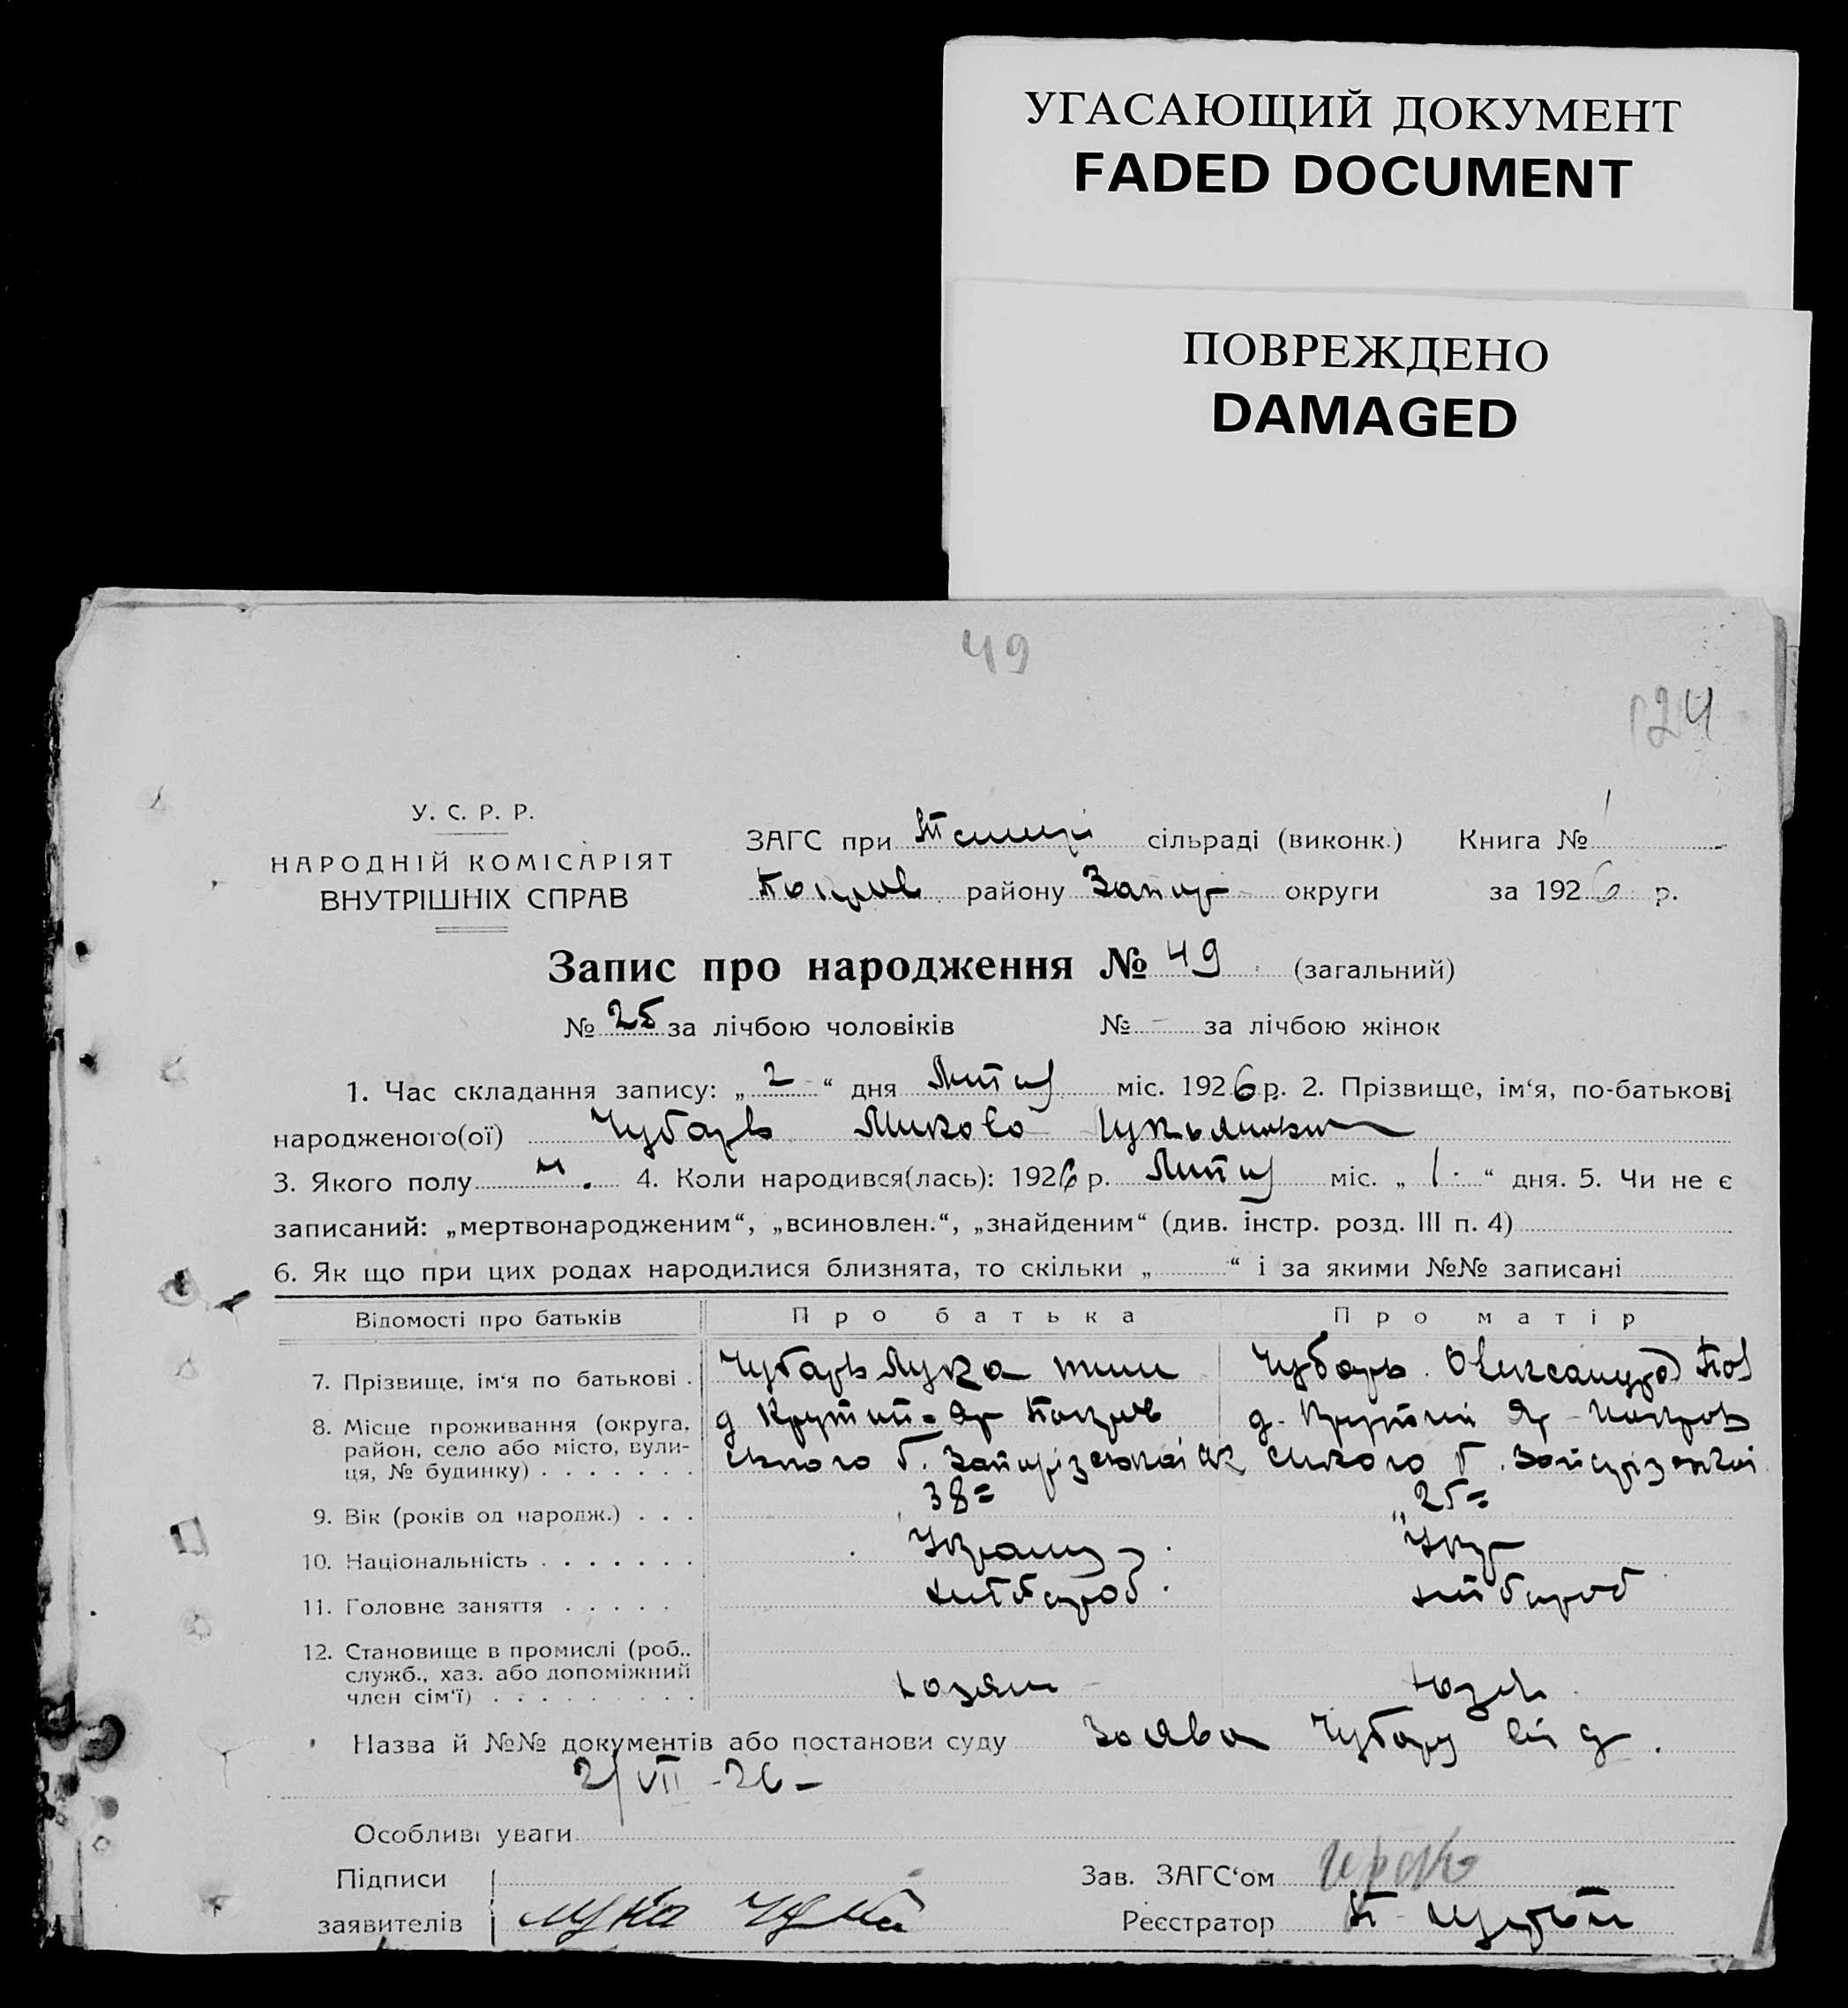 УГАСАЮЩИЙ ДОКУМЕНТ
FADED DOCUMENT
ПОВРЕЖДЕНО
DAMAGED
49
124
У. С. Р. Р.
НАРОДНІЙ КОМІСАРІЯТ
ВНУТРІШНІХ СПРАВ
ЗАГС при сільраді (виконк.) Книга № 1
району Запор округи за 1926 р.
Запис про народження № 49 (загальний)
№ 25 за лічбою чоловіків № - за лічбою жінок
1. Час складання запису: „ 2 “ дня Липця міс. 1926 р. 2. Прізвище, ім‘я, по-батькові
народженого(ої) Чубарь Микола Лукьянович
3. Якого полу м. 4. Коли народився(лась): 1926 р. Липця міс. „ 1 “ дня. 5. Чи не є
записаний: „мертвонародженим“, „всиновлен.“, „знайденим“ (див. інстр. розд. III п. 4)
6. Як що при цих родах народилися близнята, то скільки „ “ і за якими №№ записані
Відомості про батьків Про батька Про матір
7. Прізвище, ім‘я по батькові . Чубарь Лука Чубарь Олександра
8. Місце проживання (округа, д Крутий Яр Покров д. Крутий Яр Покров
район, село або місто, вули-
ця, № будинку) . . . . . . . ського Запорізської ського Запорізської
9. Вік (років од народж.) . . . 38 25
10. Національність . . . . . . . Украинц Укр
11. Головне заняття . . . . . хлібороб хлібороб
12. Становище в промислі (роб.,
служб., хаз. або допоміжний
член сім‘ї) . . . . . . . . . хозяин хозяй
Назва й №№ документів або постанови суду Заява Чубару від
2/VII-26-
Особливі уваги
Підписи Зав. ЗАГС‘ом
заявителів Лука Реєстратор